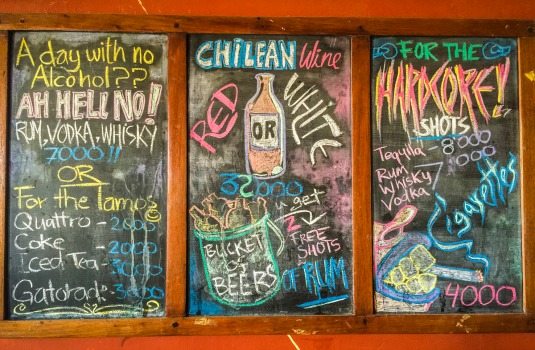 A day with no
Alcohol??
AH HELL NO!
RUM, VODKA, WHISKY
7000!!
OR
For the lamps
Quattro - 2000
Coke - 2000
Iced Tea - 3000
Gatorade: 3000
CHILEAN Wine
RED
OR
WHITE
32000
BUCKET
of
BEERS
get
2 FREE
SHOTS
OF RUM
FOR THE
HARDCORE!
SHOTS
Tequila - 8000
Rum 7000
Whisky
Vodka
Cigarettes
4000